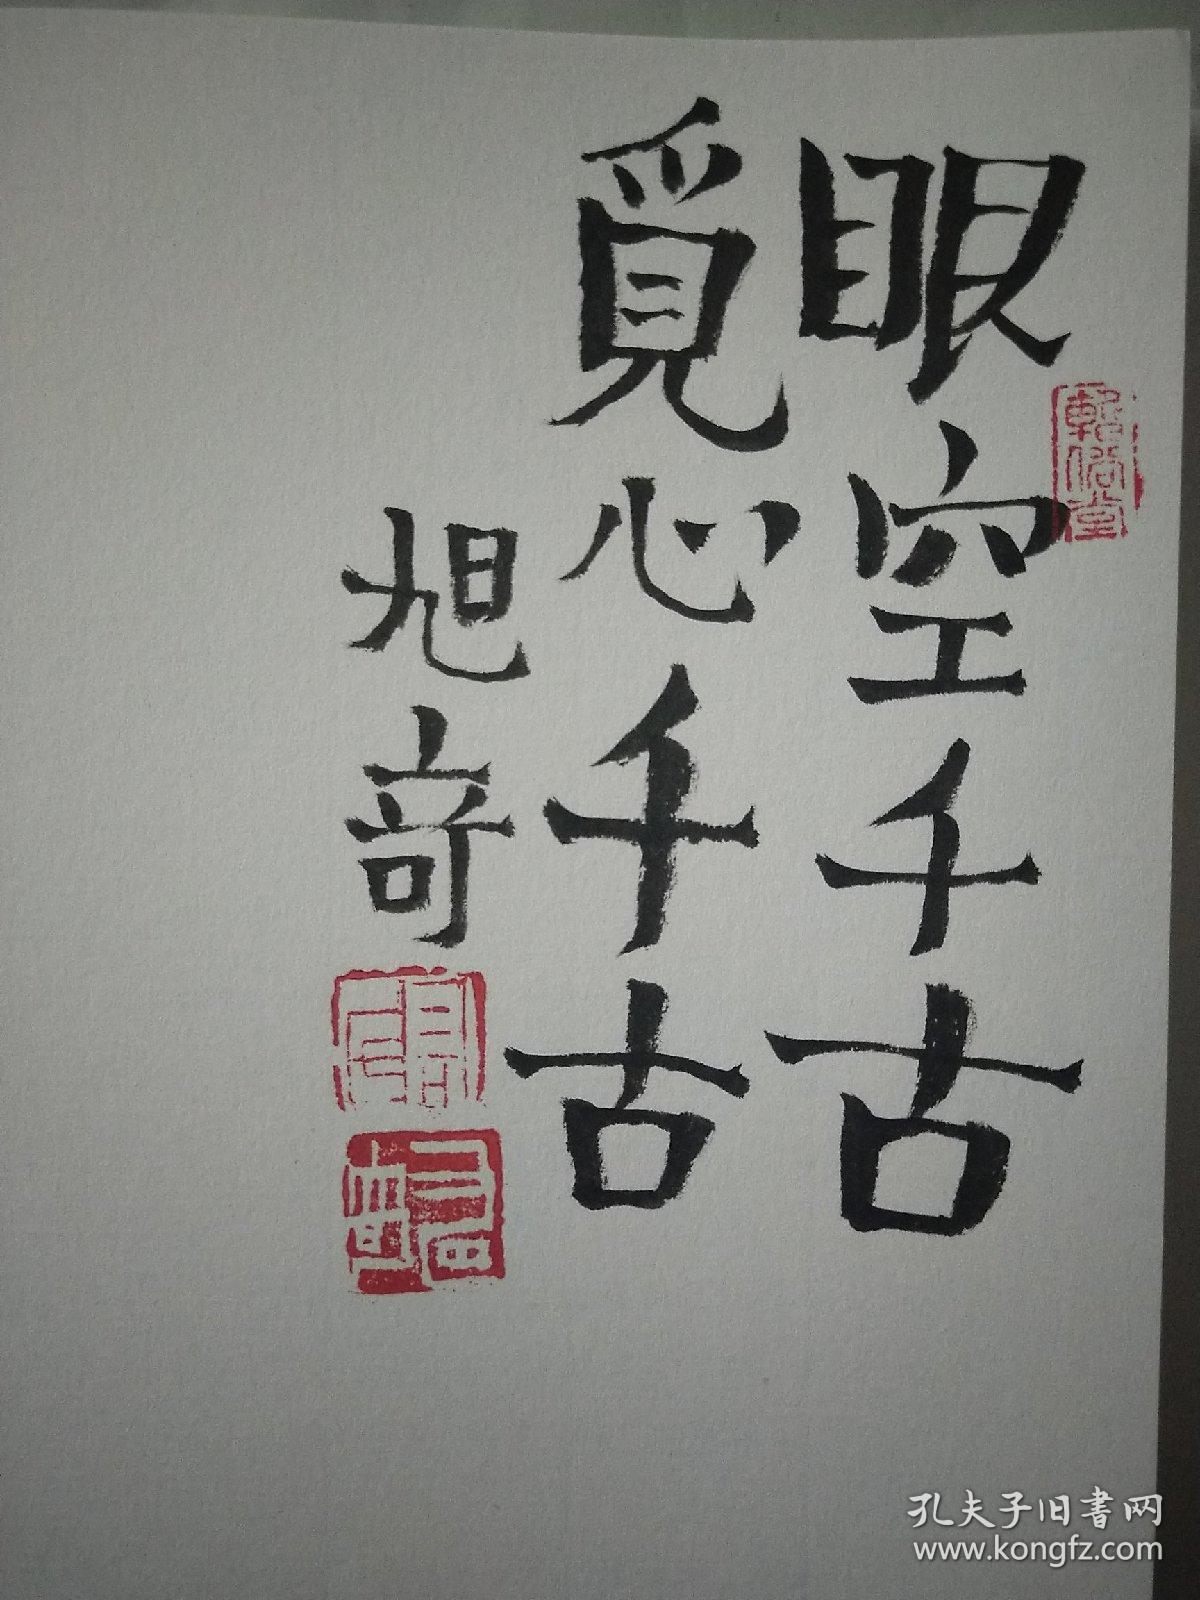 眼空千古
覓心千古
旭竒
孔夫子旧書网
www.kongfz.com